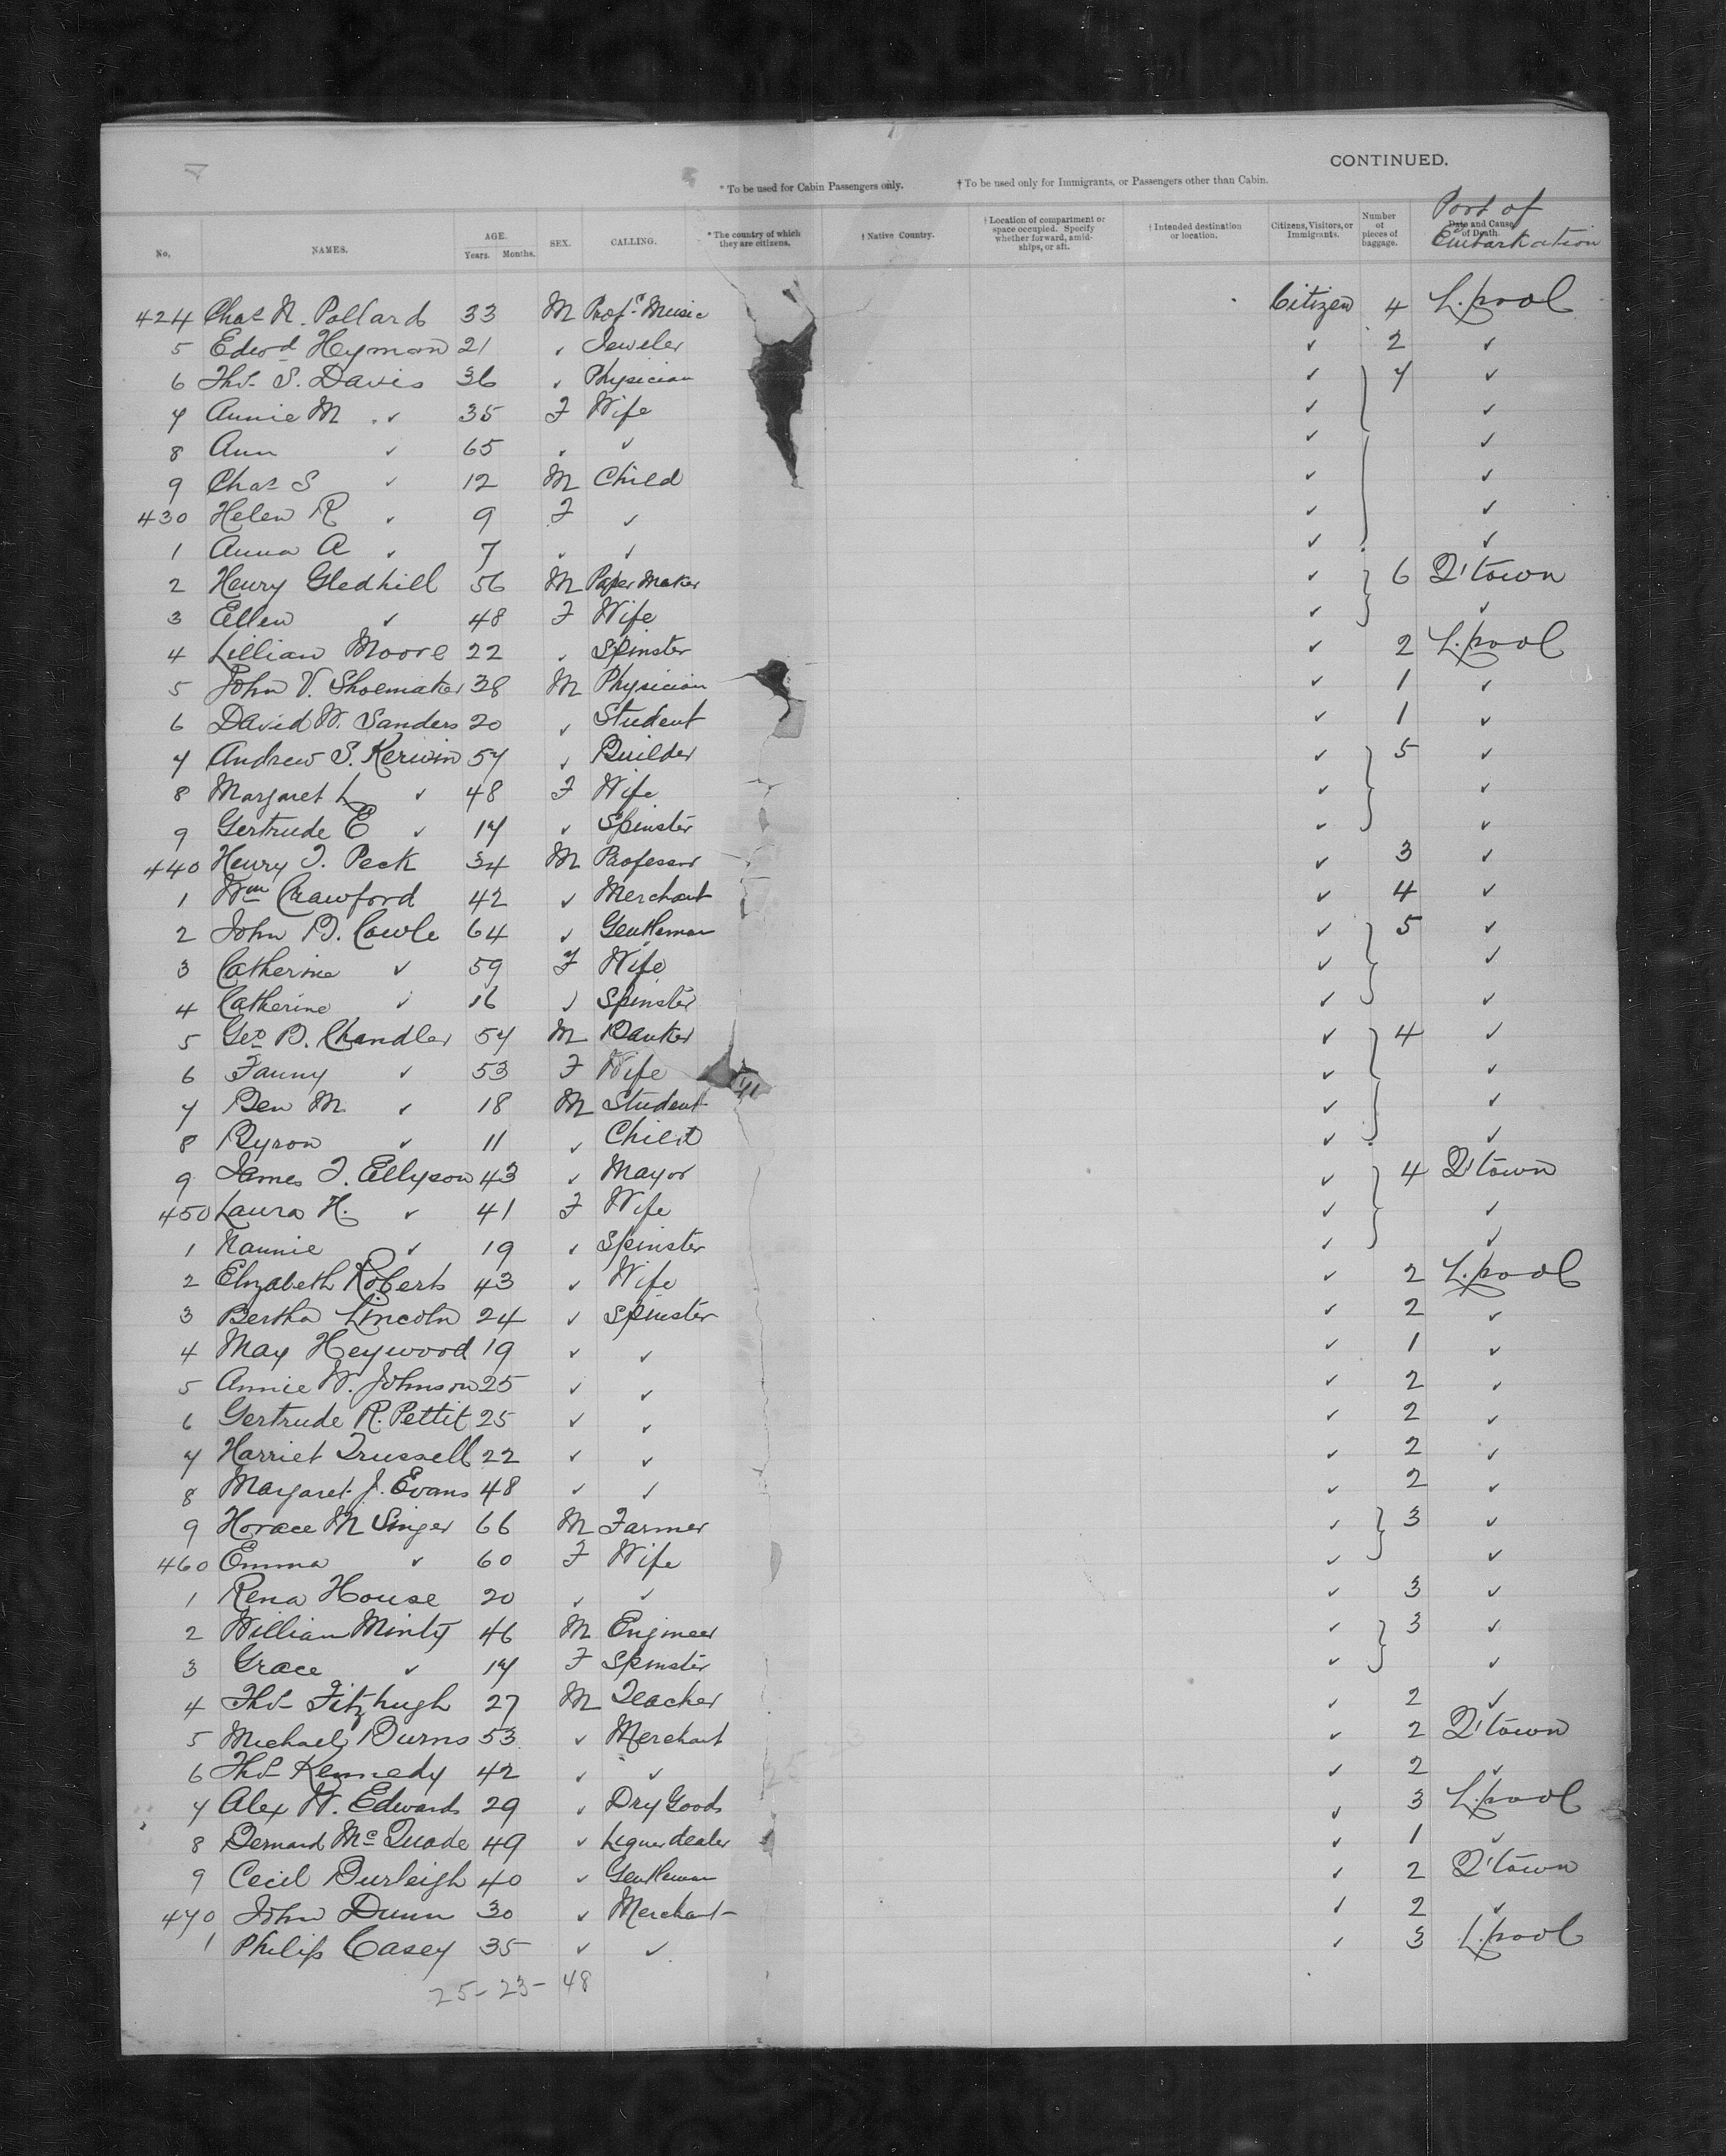 CONTINUED.
* To be used for Cabin Passengers only. † To be used only for Immigrants, or Passengers other than Cabin.
No. NAMES. AGE. Years. Months. SEX. CALLING. * The country of which they are citizens. † Native Country. † Location of compartment or space occupied. Specify whether forward, amidships, or aft. † Intended destination or location. Citizens, Visitors, or Immigrants. Number of pieces of baggage. Date and Cause of Death. Port of Embarkation
424 Chas N. Pollard 33 M Profr Music Citizen 4 L.pool
5 Edwd Heyman 21 ✓ Jeweler ✓ 2 ✓
6 Thos S. Davis 36 ✓ Physician ✓ 7 ✓
7 Annie M ✓ 35 F Wife ✓ ✓
8 Ann ✓ 65 ✓ ✓ ✓ ✓
9 Chas S ✓ 12 M Child ✓ ✓
430 Helen R ✓ 9 F ✓ ✓ ✓
1 Anna A ✓ 7 ✓ ✓ ✓ ✓
2 Henry Gledhill 56 M Paper Maker ✓ 6 Q'town
3 Ellen ✓ 48 F Wife ✓ ✓
4 Lillian Moore 22 ✓ Spinster ✓ 2 L.pool
5 John V. Shoemaker 38 M Physician ✓ 1 ✓
6 David W. Sanders 20 ✓ Student ✓ 1 ✓
7 Andrew S. Kerwin 57 ✓ Builder ✓ 5 ✓
8 Margaret L ✓ 48 F Wife ✓ ✓
9 Gertrude E ✓ 17 ✓ Spinster ✓ ✓
440 Henry T. Peck 34 M Professor ✓ 3 ✓
1 Wm Crawford 42 ✓ Merchant ✓ 4 ✓
2 John B. Cowle 64 ✓ Gentleman ✓ 5 ✓
3 Catherine ✓ 59 F Wife ✓ ✓
4 Catherine ✓ 16 ✓ Spinster ✓ ✓
5 Geo B. Chandler 57 M Banker ✓ 4 ✓
6 Fanny ✓ 53 F Wife ✓ ✓
7 Ben M. ✓ 18 M Student ✓ ✓
8 Byron ✓ 11 ✓ Child ✓ ✓
9 James T. Ellyson 43 ✓ Mayor ✓ 4 Q'town
450 Laura H. ✓ 41 F Wife ✓ ✓
1 Nannie ✓ 19 ✓ Spinster ✓ ✓
2 Elizabeth Roberts 43 ✓ Wife ✓ 2 L.pool
3 Bertha Lincoln 24 ✓ Spinster ✓ 2 ✓
4 May Heywood 19 ✓ ✓ ✓ 1 ✓
5 Annie W. Johnson 25 ✓ ✓ ✓ 2 ✓
6 Gertrude R. Pettit 25 ✓ ✓ ✓ 2 ✓
7 Harriet Trussell 22 ✓ ✓ ✓ 2 ✓
8 Margaret J. Evans 48 ✓ ✓ ✓ 2 ✓
9 Horace M Singer 66 M Farmer ✓ 3 ✓
460 Emma ✓ 60 F Wife ✓ ✓
1 Rena House 20 ✓ ✓ ✓ 3 ✓
2 William Minty 46 M Engineer ✓ 3 ✓
3 Grace ✓ 17 F Spinster ✓ ✓
4 Thos Fitzhugh 27 M Teacher ✓ 2 ✓
5 Michael Burns 53 ✓ Merchant ✓ 2 Q'town
6 Thos Kennedy 42 ✓ ✓ ✓ 2 ✓
7 Alex W. Edwards 29 ✓ Dry Goods ✓ 3 L.pool
8 Bernard McQuade 49 ✓ Liquer dealer ✓ 1 ✓
9 Cecil Burleigh 40 ✓ Gentleman ✓ 2 Q'town
470 John Dunn 30 ✓ Merchant ✓ 2 ✓
1 Philip Casey 35 ✓ ✓ ✓ 3 L.pool
25-23-48